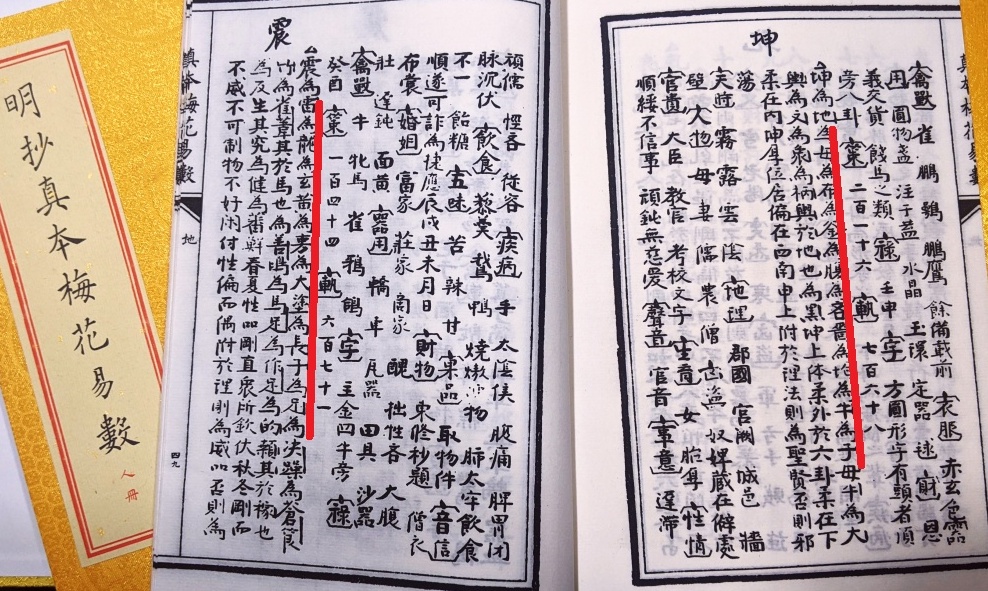 坤
禽獸 雀 鵬 鶚 鵬鷹 餘備載前 衣服 赤玄色需
用 圓物盞 注子蓋 水晶 玉環 定器 毬 財 恩
義交貨 餞馬之類 祿 壬申 字 方圓形字有頭者須
旁八卦 策 二百一十六 軌 七百六十八
坤為地為母為布為釜為腸為吝嗇為均為牛為子母牛為大
輿為文為衆為柄輿於地也為黑坤上体柔外於六卦柔在下
柔在内坤厚位居偏在西南申上附於理法則為聖賢否則邪
蕩 天時 霧 露 雲 陰 地理 郡國 宮闕 城邑 墻
壁 人物 母 妻 儒 農 僧 奴婢藏在僻處
官貴 大臣 教官 考校文字 生育 女 胎耳 性情
順緩不信事 頑鈍無慈愛 聲音 宮音 事意 遲滯
震
頑儒 慳吝 從容 疾病 手 太陰俠 腹痛 脾胃閉
脉沉伏 飲食 黎羹 鵝 鴨 燒燉 物 肺太牢飲食
不一 飴糖 五味 苦 辣 甘 菓品 取物件 音信
順遂可詐為捷應辰戌丑未月日 財物 束脩 題 僭衣
布裳 婚姻 富家 莊家 閤家 醜 拙性吝 大腹
壯 遲鈍 面黃 器用 轎 車 瓦器 田具 沙器
禽獸 牛 牝馬 雀 鴉 鴿 字 主金四牛旁 祿
癸酉 策 一百四十四 軌 六百七十一
震為雷為龍為玄黃為旉為大塗為長子為足為决躁為蒼筤
竹為萑葦其於馬也為善鳴為馬足為作足為的顙其於稼也
為反生其究為健為蕃鮮春夏性品剛直衆所欽伏秋冬剛而
不威不可制物不好閑付性偏而隅附於理則為威品否則為
真本梅花易數
地
四九
明抄真本梅花易數
人冊